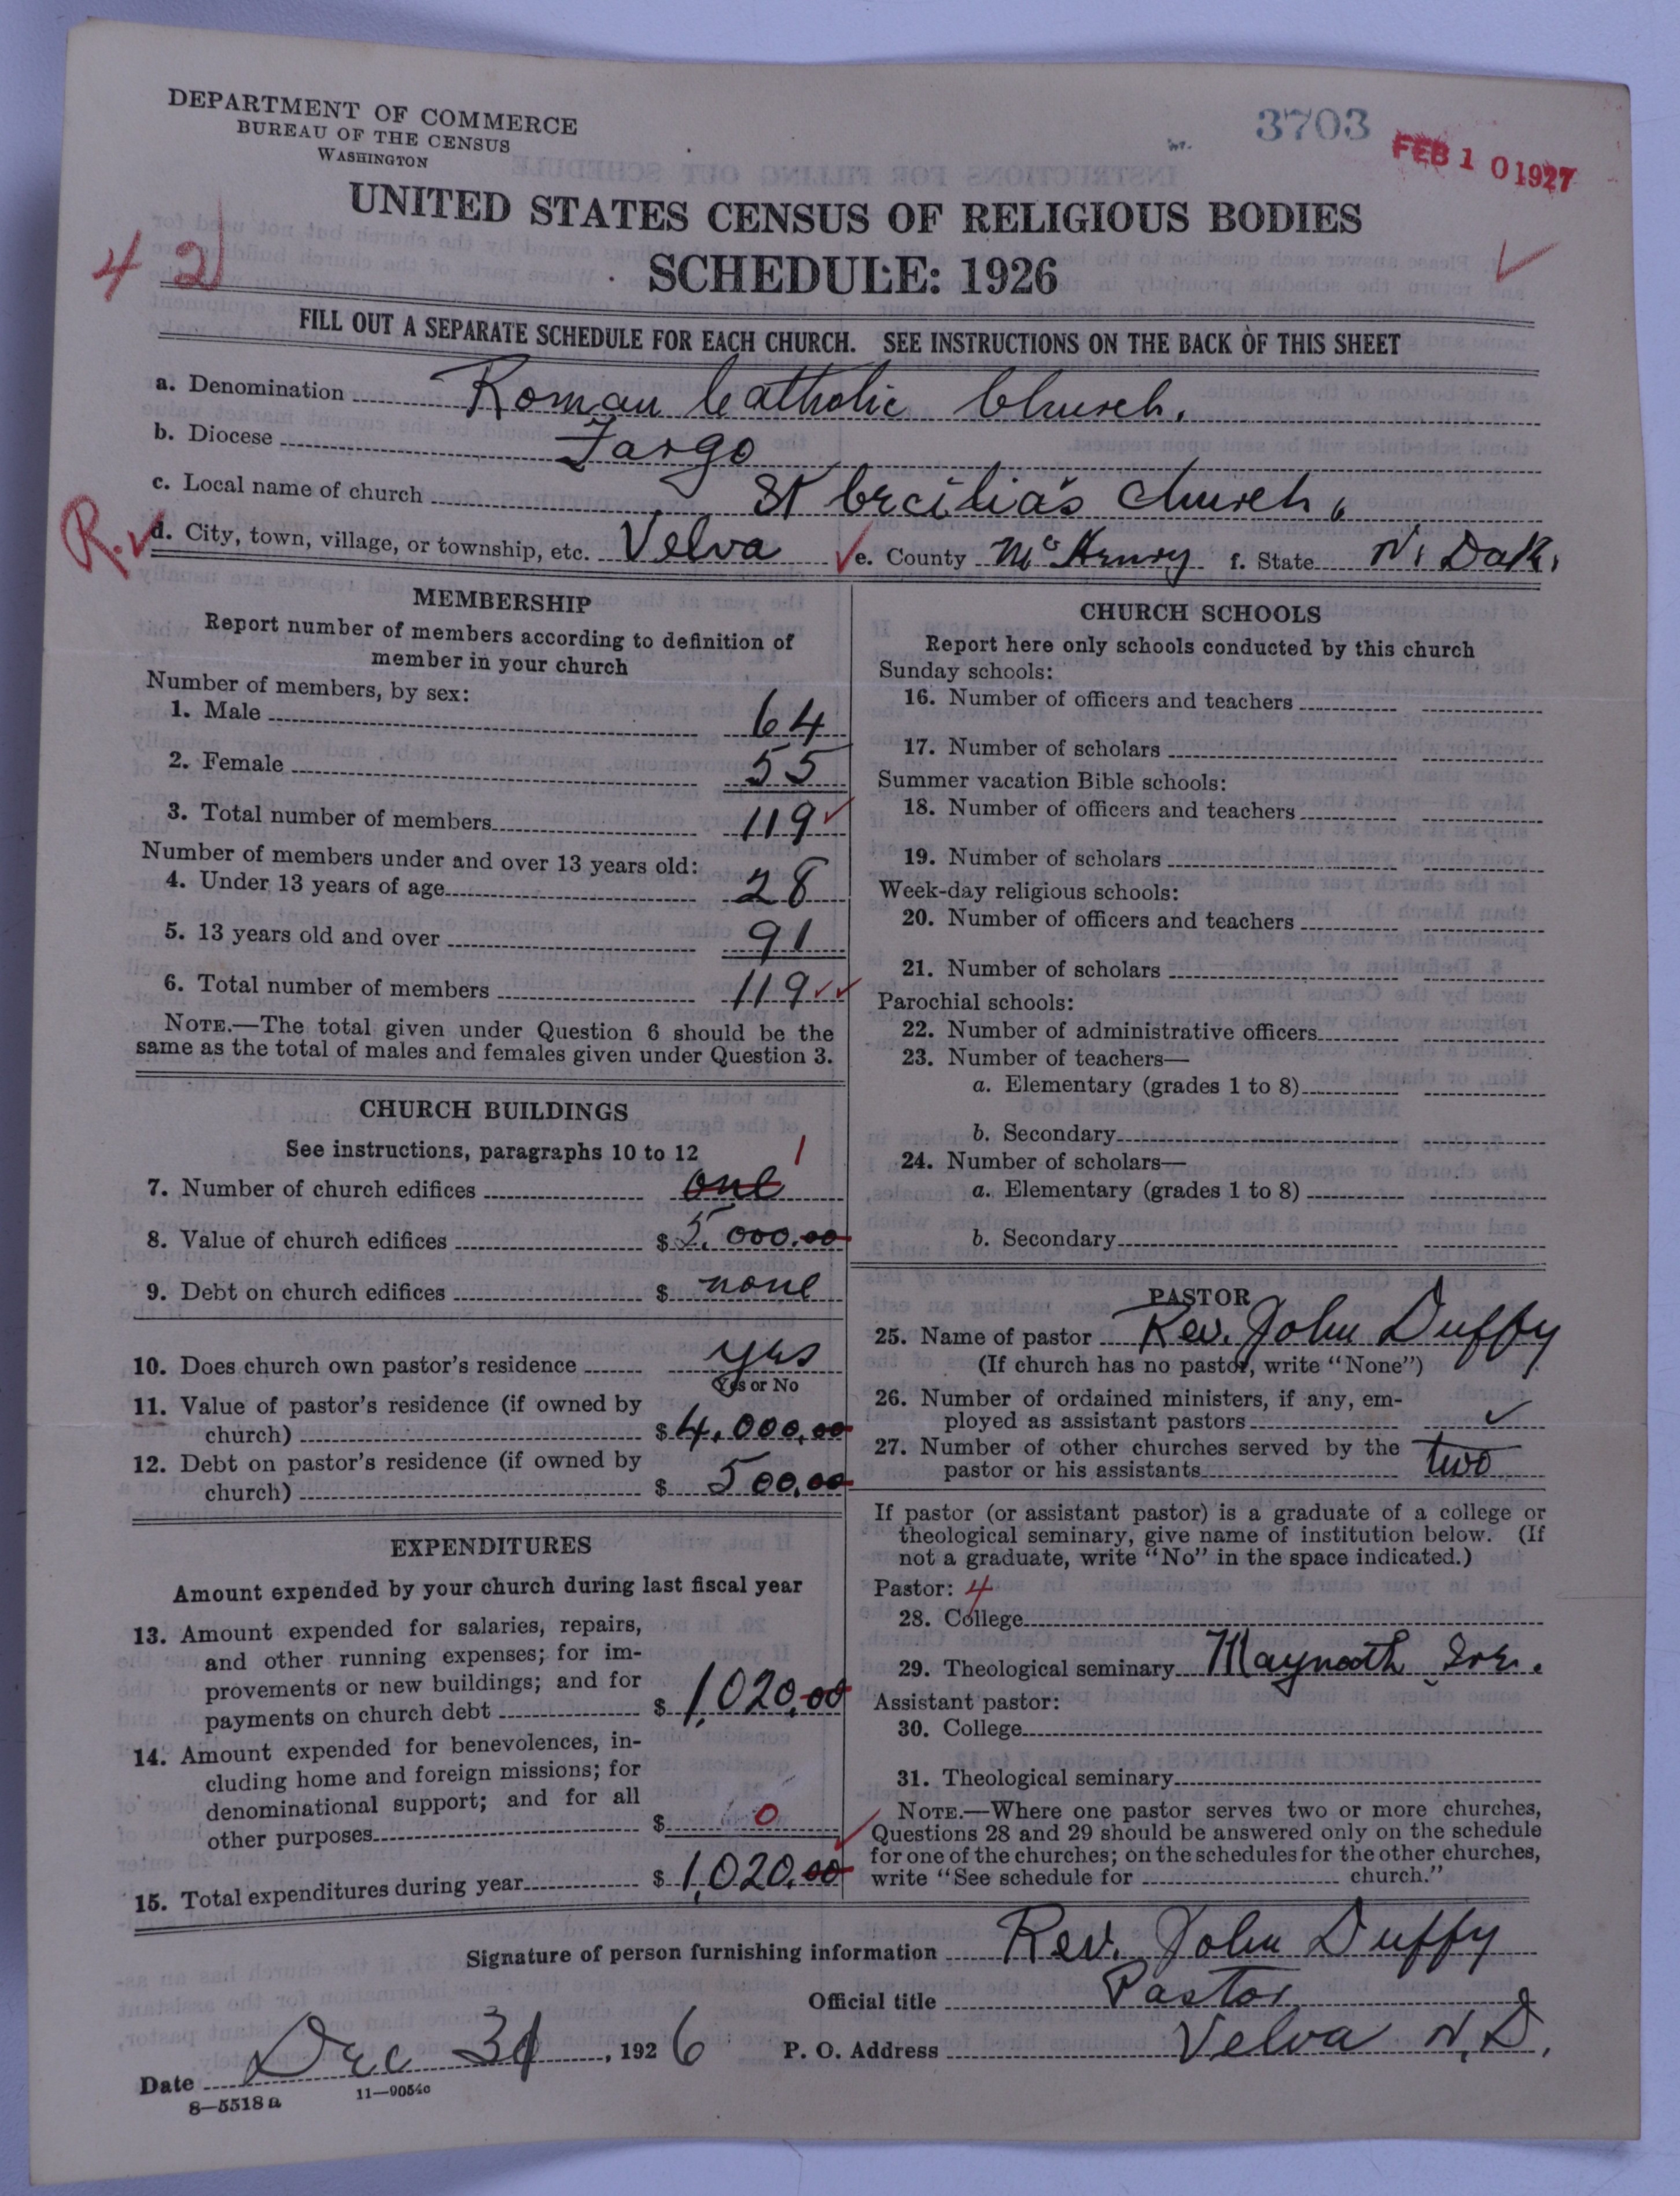 DEPARTMENT OF COMMERCE
BUREAU OF THE CENSUS
WASHINGTON
3703
FEB 10 1927
UNITED STATES CENSUS OF RELIGIOUS BODIES
42
SCHEDULE: 1926
FILL OUT A SEPARATE SCHEDULE FOR EACH CHURCH. SEE INSTRUCTIONS ON THE BACK OF THIS SHEET
a. Denomination Roman Catholic Church.
b. Diocese Fargo
c. Local name of church St Cecilia's Church,
R. ✓ d. City, town, village, or township, etc. Velva ✓ e. County McHenry f. State N. Dak.
MEMBERSHIP
Report number of members according to definition of
member in your church
Number of members, by sex:
1. Male 64
2. Female 55
3. Total number of members 119 ✓
Number of members under and over 13 years old:
4. Under 13 years of age 28
5. 13 years old and over 91
6. Total number of members 119 ✓✓
NOTE.—The total given under Question 6 should be the
same as the total of males and females given under Question 3.
CHURCH BUILDINGS
See instructions, paragraphs 10 to 12 1
7. Number of church edifices one
8. Value of church edifices $ 5,000.00
9. Debt on church edifices $ none
10. Does church own pastor's residence yes
Yes or No
11. Value of pastor's residence (if owned by
church) $ 4,000.00
12. Debt on pastor's residence (if owned by
church) $ 500.00
EXPENDITURES
Amount expended by your church during last fiscal year
13. Amount expended for salaries, repairs,
and other running expenses; for im-
provements or new buildings; and for
payments on church debt $ 1,020.00
14. Amount expended for benevolences, in-
cluding home and foreign missions; for
denominational support; and for all
other purposes $ 0
15. Total expenditures during year $ 1,020.00
CHURCH SCHOOLS
Report here only schools conducted by this church
Sunday schools:
16. Number of officers and teachers
17. Number of scholars
Summer vacation Bible schools:
18. Number of officers and teachers
19. Number of scholars
Week-day religious schools:
20. Number of officers and teachers
21. Number of scholars
Parochial schools:
22. Number of administrative officers
23. Number of teachers—
a. Elementary (grades 1 to 8)
b. Secondary
24. Number of scholars—
a. Elementary (grades 1 to 8)
b. Secondary
PASTOR
25. Name of pastor Rev. John Duffy
(If church has no pastor, write "None")
26. Number of ordained ministers, if any, em-
ployed as assistant pastors ✓
27. Number of other churches served by the
pastor or his assistants two
If pastor (or assistant pastor) is a graduate of a college or
theological seminary, give name of institution below. (If
not a graduate, write "No" in the space indicated.)
Pastor: 4
28. College
29. Theological seminary Maynooth Ire.
Assistant pastor:
30. College
31. Theological seminary
NOTE.—Where one pastor serves two or more churches,
Questions 28 and 29 should be answered only on the schedule
for one of the churches; on the schedules for the other churches,
write "See schedule for church."
Signature of person furnishing information Rev. John Duffy
Official title Pastor
Date Dec 31, 1926 P. O. Address Velva N.D.
8—5518a 11—9054c